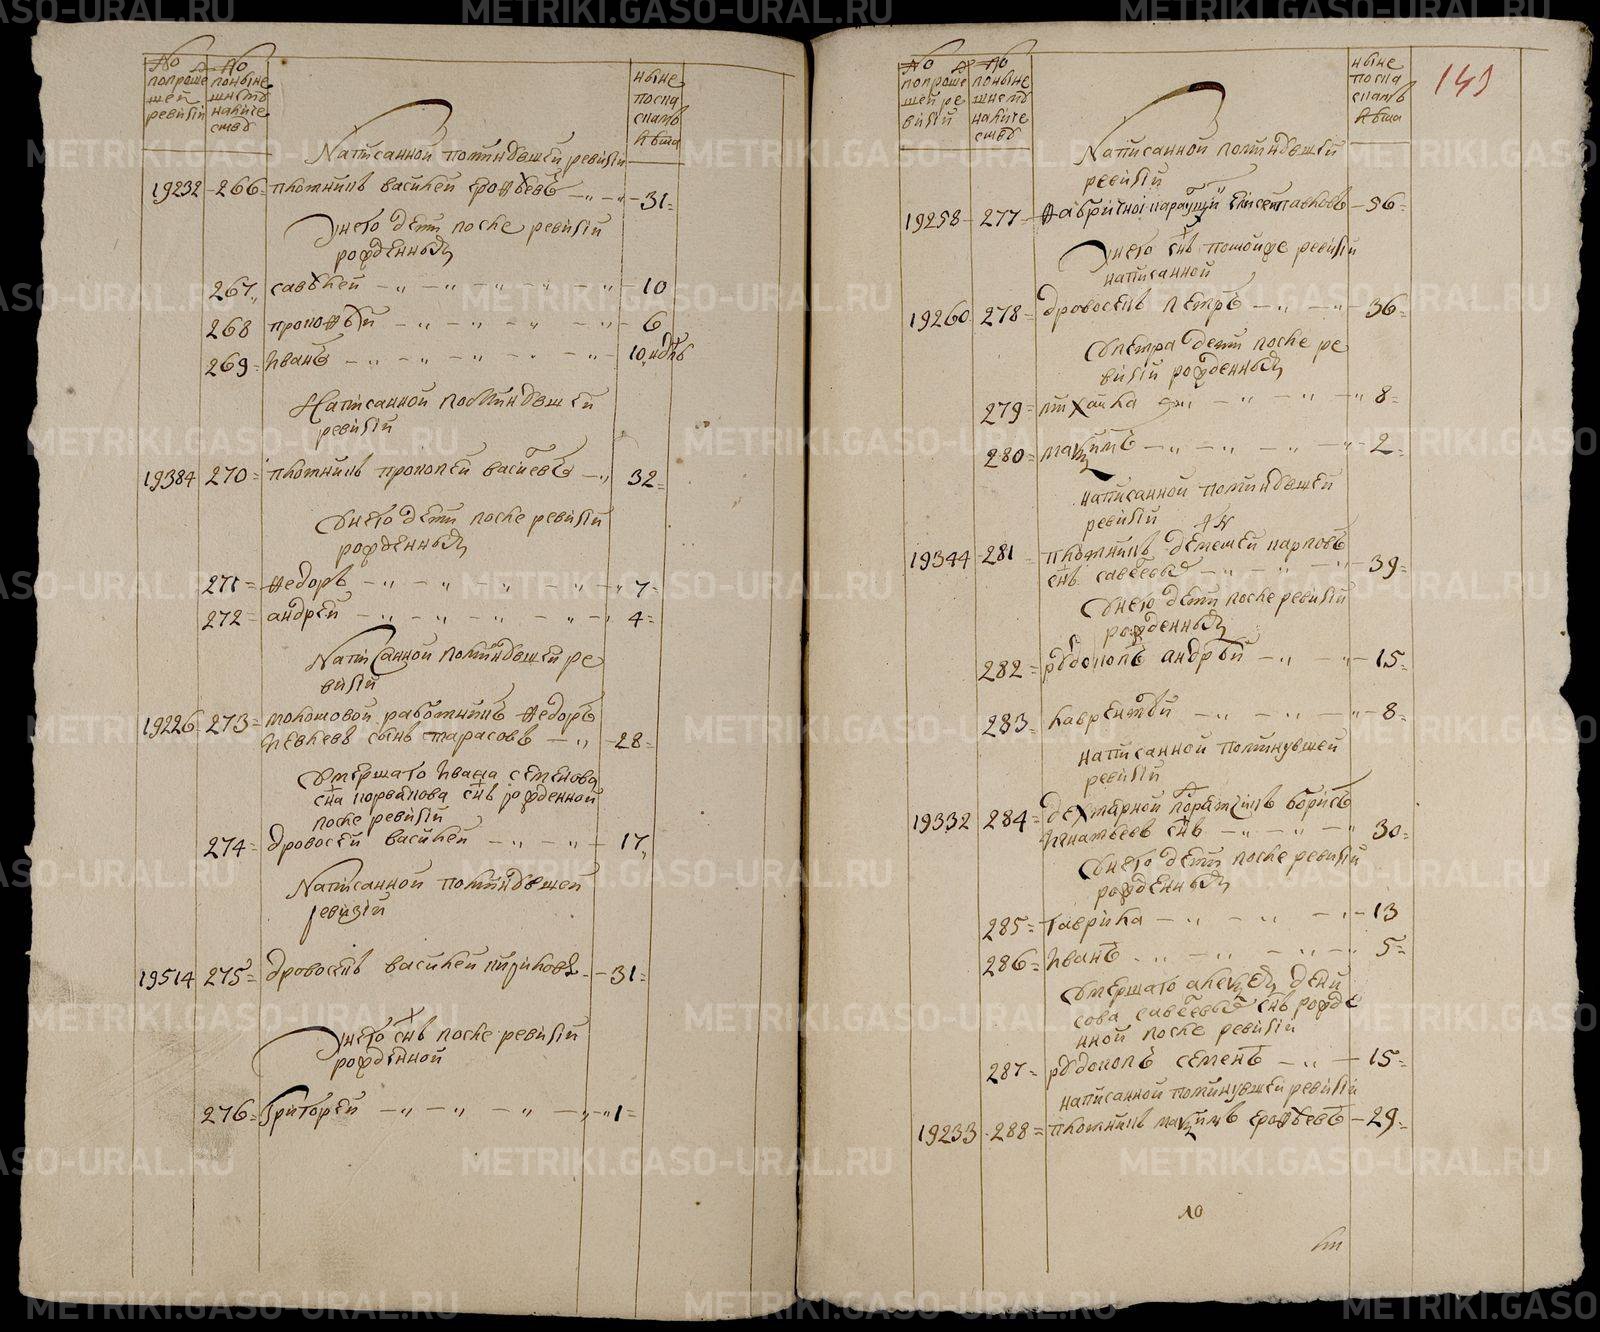 № попрошешей ревизии
№ поныне шнему количеству
ныне по сказкамъ лета
Написанной поминувшей ревизии
19232 266 плотникъ василей ерофеевъ 31
У него дети после ревизии
рожденныя
267 савелей 10
268 прокофей 6
269 Иванъ 10 недль
Написанной поминувшей
ревизии
19384 270 плотникъ прокопей васиевъ 32
У него дети после ревизии
рожденныя
271 Федоръ 7
272 андрей 4
Написанной поминувшей ре
визии
19226 273 молотовой работникъ Федоръ
сынъ тарасовъ 28
Умершаго Ивана семенова
сна снъ рожденной
после ревизии
274 дровосекъ василей 17
Написанной поминувшей
ревизии
19514 275 дровосекъ василей 31
У него снъ после ревизии
рожденной
276 Григорей 1
149
№ попрошешей ревизии
№ поныне шнему количеству
ныне по сказкамъ лета
Написанной поминувшей
ревизии
19258 277 фабричной 56
У него снъ потомуже ревизии
написанной
19260 278 дровосекъ петръ 36
У петра дети после ре
визии рожденныя
279 михайла 8
280 максимъ 2
написанной поминувшей
ревизии
19344 281 плотникъ дементей карповъ
снъ 39
У него дети после ревизии
рожденныя
282 рудокопъ андрей 15
283 лаврентей 8
написанной поминувшей
ревизии
19332 284 дехтярной борисъ
Игнатьевъ снъ 30
У него дети после ревизии
рожденныя
285 гаврила 13
286 Иванъ 5
Умершаго алексея дени
сова снъ рожде
нной после ревизии
287 рудокопъ семенъ 15
написанной поминувшей ревизии
19233 288 плотникъ максимъ ерофеевъ 29